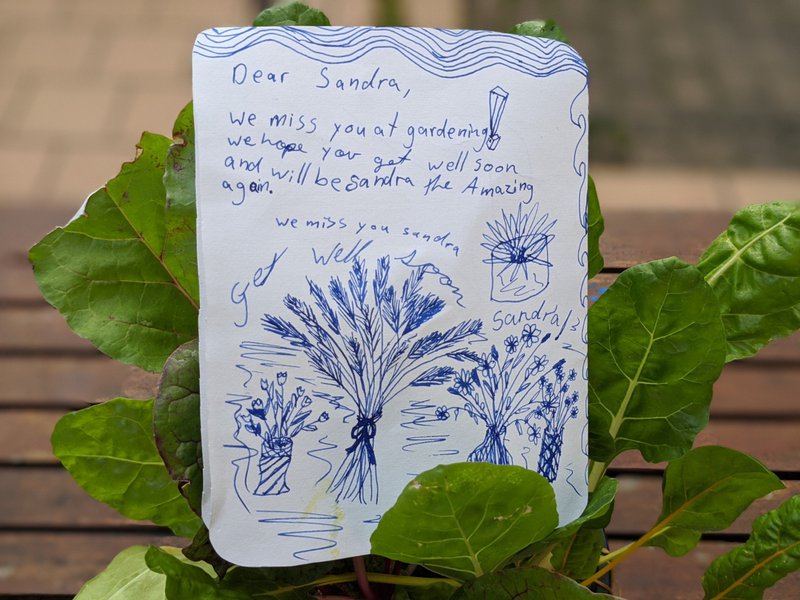 Dear Sandra,
we miss you at gardening!
we hope you get well soon
and will be sandra the Amazing
again.
we miss you sandra
get well soon
Sandra!